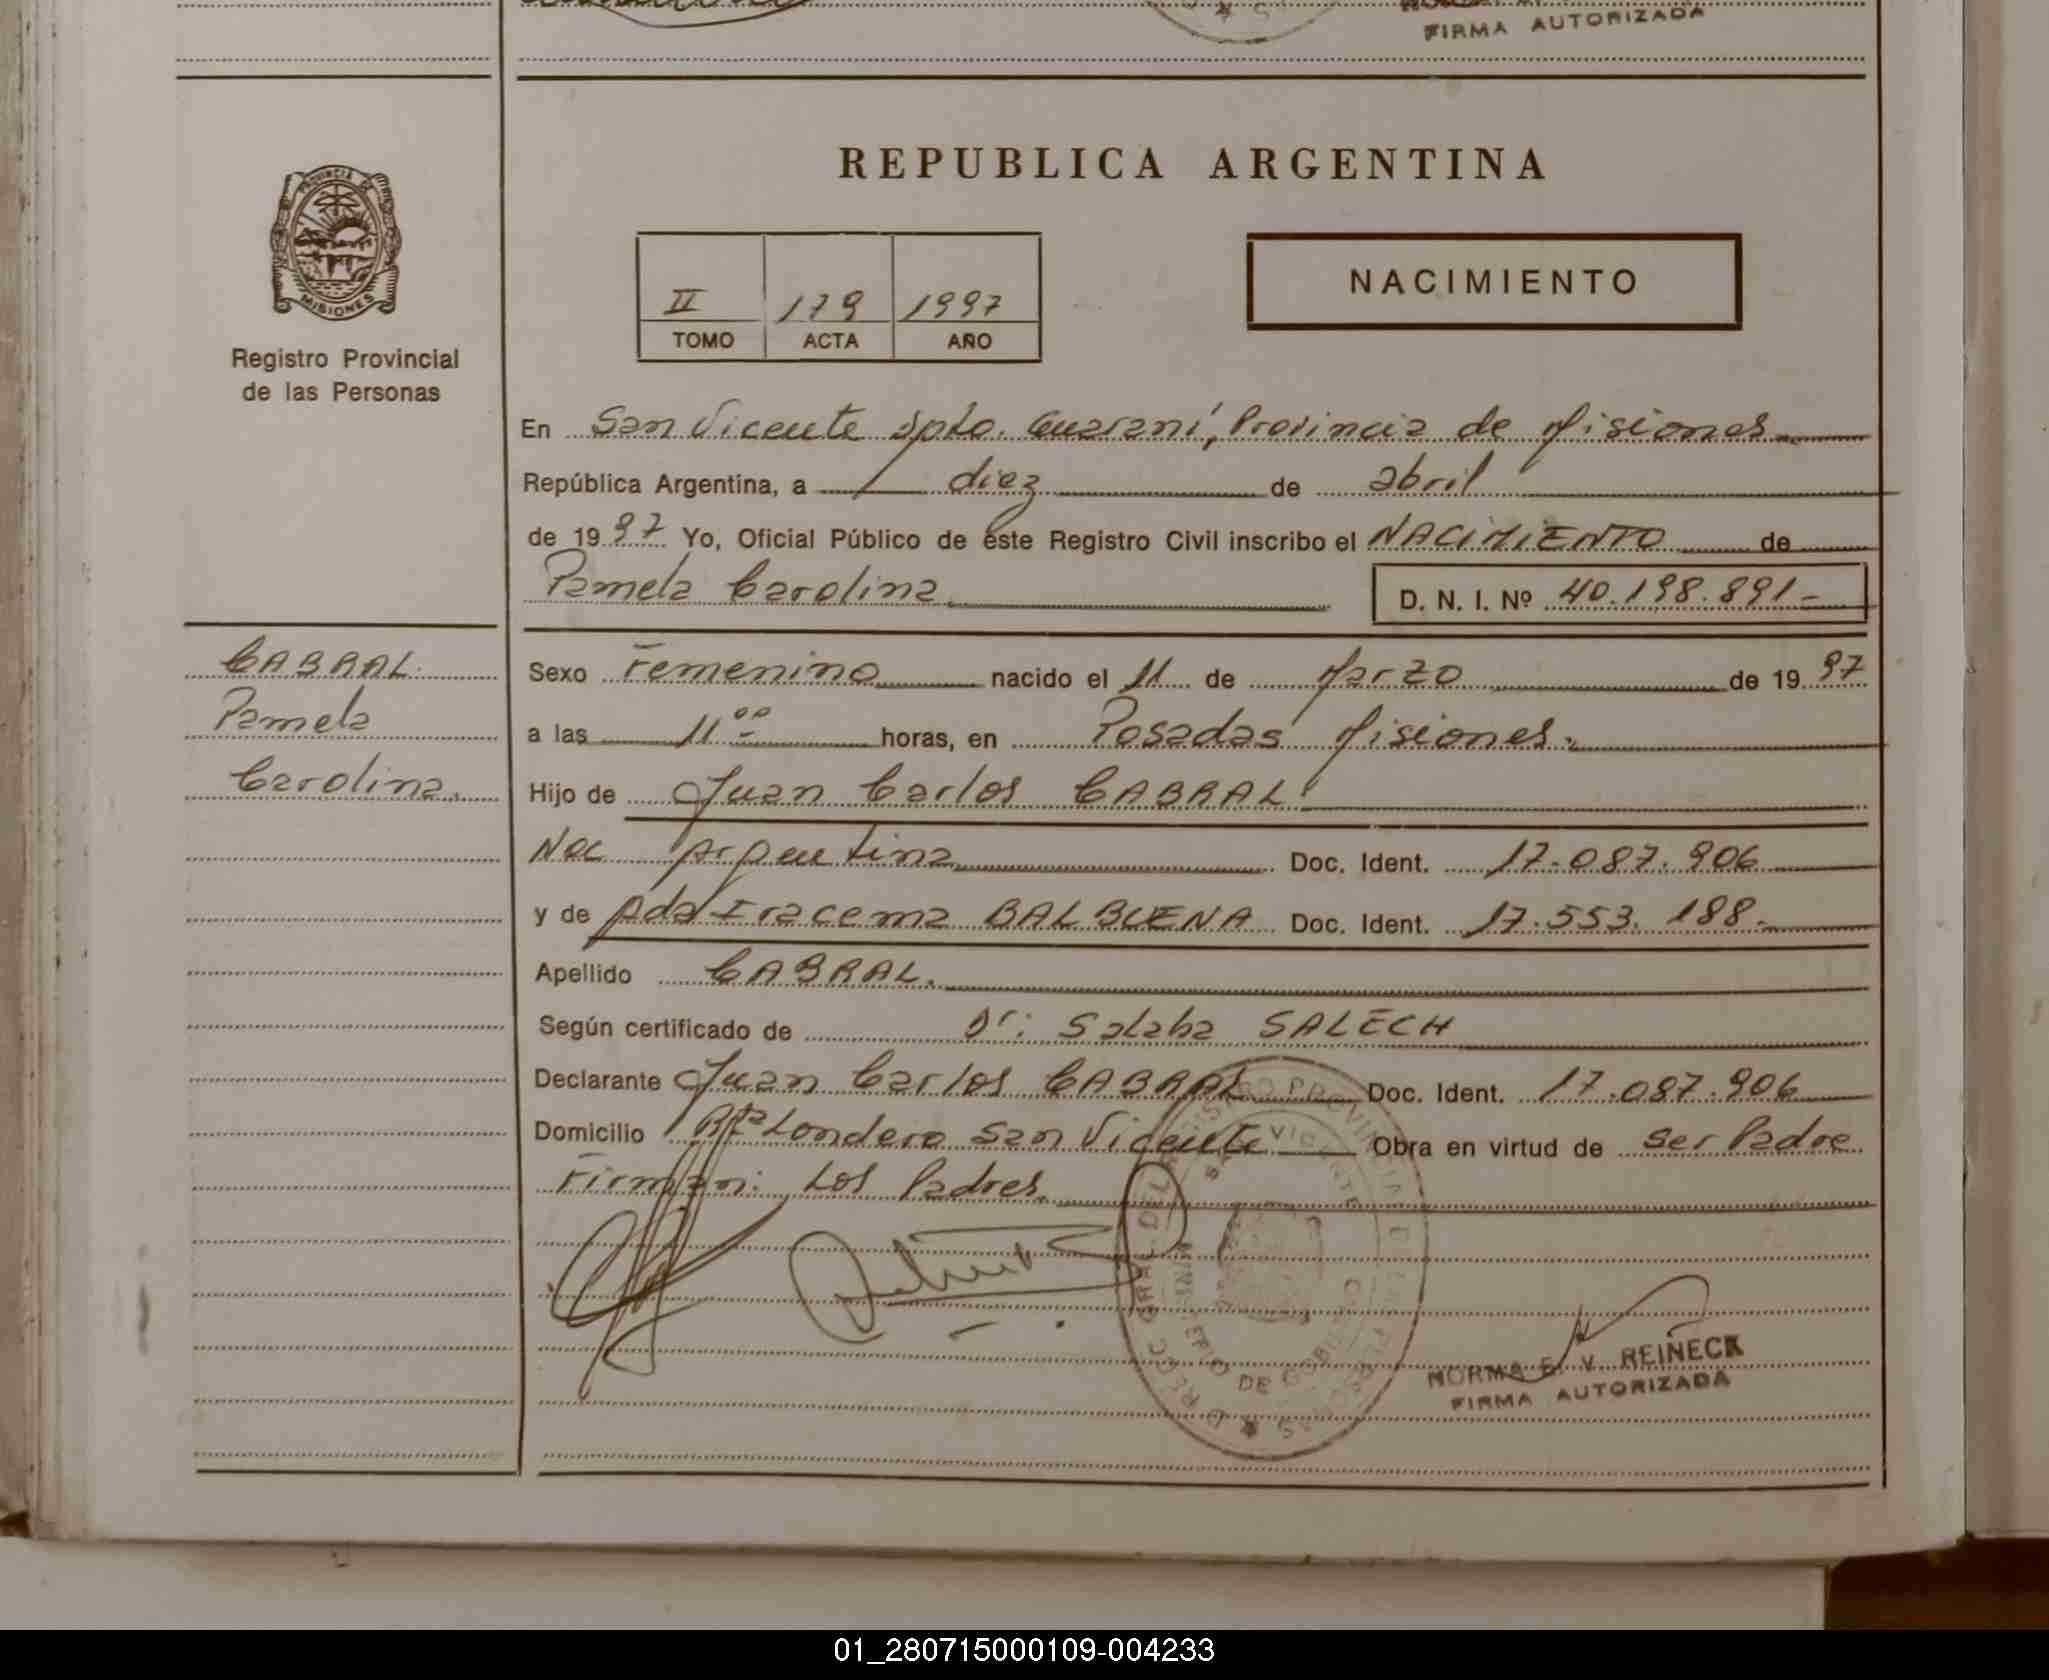 FIRMA AUTORIZADA
REPUBLICA ARGENTINA
PROVINCIA DE
MISIONES
Registro Provincial
de las Personas
II 179 1997
TOMO ACTA AÑO
NACIMIENTO
En San Vicente Dpto. Guaraní, Provincia de Misiones
República Argentina, a diez de abril
de 1997 Yo, Oficial Público de este Registro Civil inscribo el NACIMIENTO de
Pamela Carolina D. N. I. Nº 40.198.891-
CABRAL.
Pamela
Carolina.
Sexo Femenino nacido el 11 de Marzo de 1997
a las 11 00 horas, en Posadas Misiones.
Hijo de Juan Carlos CABRAL
Nac Argentina Doc. Ident. 17.087.906
y de Ada Iracema BALBUENA Doc. Ident. 17.553.188.
Apellido CABRAL.
Según certificado de Dr: Salaba SALECH
Declarante Juan Carlos CABRAL Doc. Ident. 17.087.906
Domicilio Bº Londero San Vicente Obra en virtud de ser Padre
Firman: Los Padres.
NORMA E. V. REIÑECK
FIRMA AUTORIZADA
01_280715000109-004233